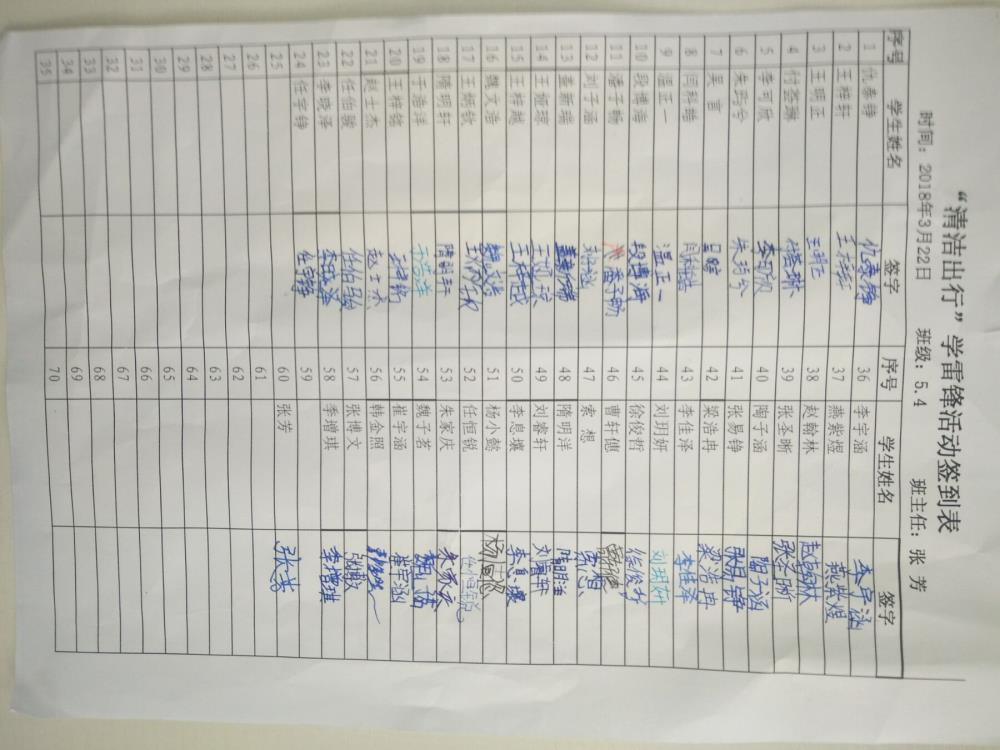 “清洁出行”学雷锋活动签到表
时间：2018年3月22日 班级：5.4 班主任：张 芳
序号 学生姓名 签字 序号 学生姓名 签字
1 仇泰铮 仇泰铮 36 李宇涵 李宇涵
2 王梓轩 王梓轩 37 燕紫煜 燕紫煜
3 王明正 王明正 38 赵翰林 赵翰林
4 付荟琳 付荟琳 39 张圣晰 张圣晰
5 李可欣 李可欣 40 陶子涵 陶子涵
6 朱玓兮 朱玓兮 41 张易铮 张易铮
7 吴 言 42 梁浩冉 梁浩冉
8 闫科皓 闫科皓 43 李佳泽 李佳泽
9 温正一 温正一 44 刘玥妍 刘玥妍
10 段博海 段博海 45 徐俊哲 徐俊哲
11 潘子旸 潘子旸 46 曹轩僡
12 刘子涵 刘子涵 47 索 想 索想
13 孟新瑞 孟新瑞 48 隋明洋 隋明洋
14 王娅琼 王娅琼 49 刘睿轩 刘睿轩
15 王梓越 王梓越 50 李息壤 李息壤
16 魏文浩 魏文浩 51 杨小懿 杨小懿
17 王炳钦 王炳钦 52 任恒锐 任恒锐
18 隋明轩 隋明轩 53 朱家庆 朱家庆
19 于浩洋 于浩洋 54 魏子茗 魏子茗
20 王梓铭 王梓铭 55 崔宇涵 崔宇涵
21 赵士杰 赵士杰 56 韩金照
22 任伯骏 任伯骏 57 张博文 张博文
23 李晓泽 李晓泽 58 季增琪 季增琪
24 任宇铮 任宇铮 59
25 60 张芳 张芳
26 61
27 62
28 63
29 64
30 65
31 66
32 67
33 68
34 69
35 70